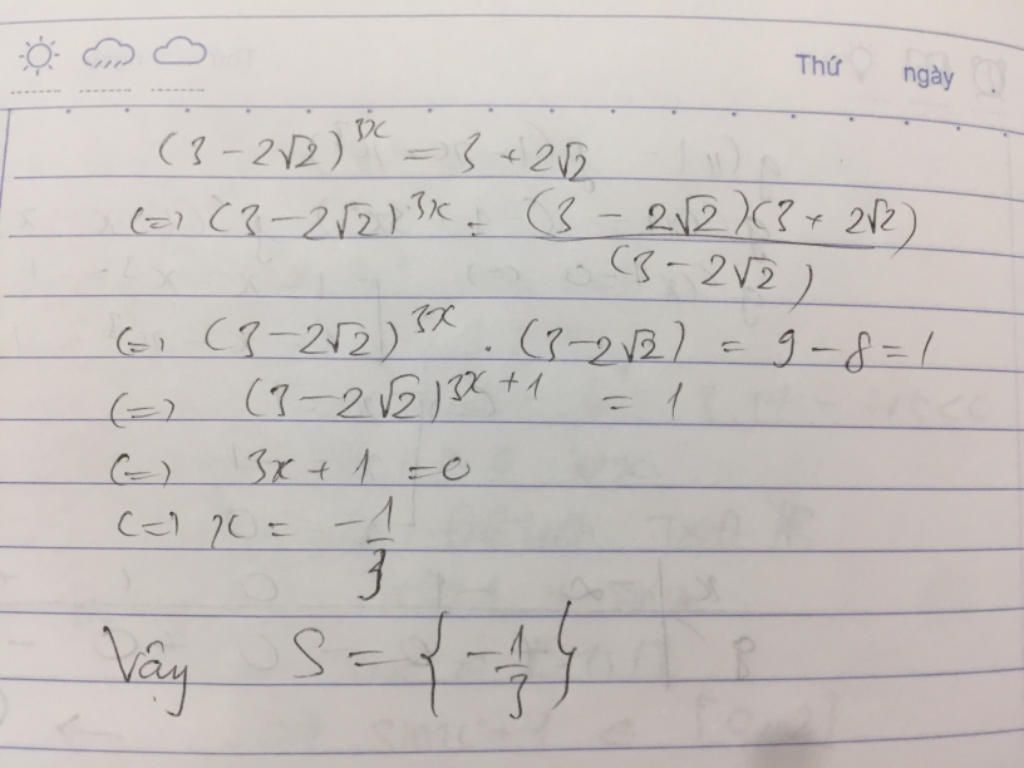 Thứ ngày
(3 - 2√2)^3x = 3 + 2√2
(=) (3 - 2√2)^3x = (3 - 2√2)(3 + 2√2) / (3 - 2√2)
(=) (3 - 2√2)^3x . (3 - 2√2) = 9 - 8 = 1
(=) (3 - 2√2)^3x + 1 = 1
(=) 3x + 1 = 0
(=) x = -1/3
Vậy S = { -1/3 }